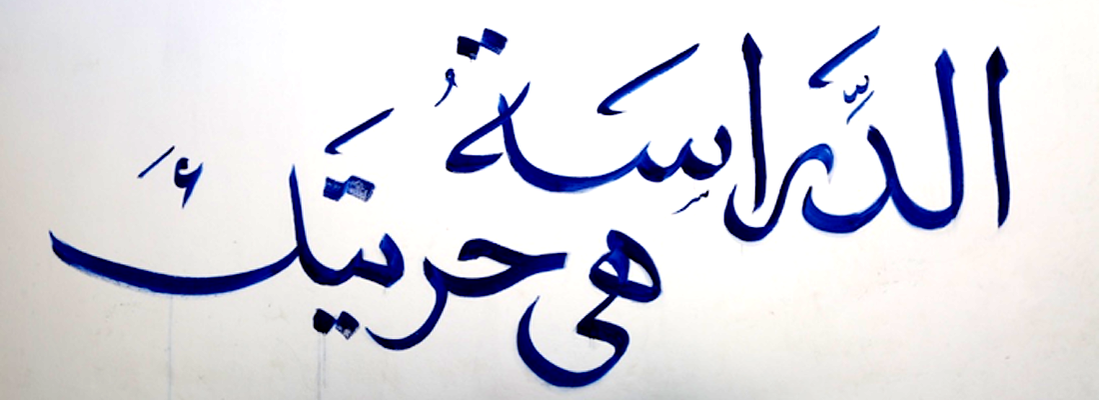 الدِّرَاسَةُ
هى حريتك